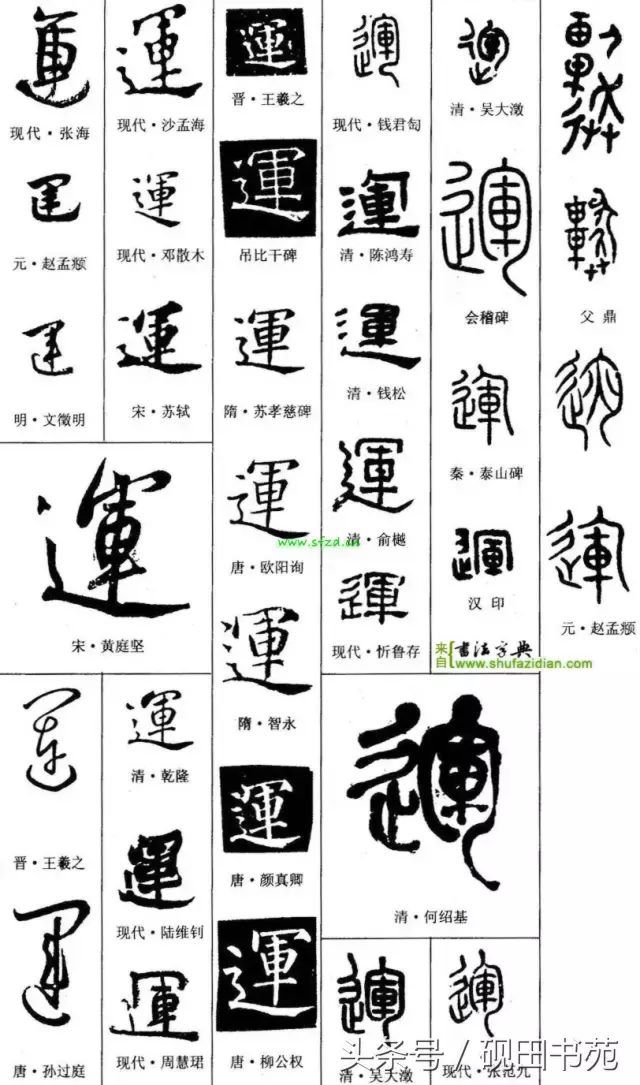 運
现代·张海
運
元·赵孟頫
運
明·文徵明
運
现代·沙孟海
運
现代·邓散木
運
宋·苏轼
運
宋·黄庭坚
運
晋·王羲之
運
唐·孙过庭
運
清·乾隆
運
现代·陆维钊
運
现代·周慧珺
運
晋·王羲之
運
吊比干碑
運
隋·苏孝慈碑
運
www.sfzd.cn
唐·欧阳询
運
隋·智永
運
唐·颜真卿
運
唐·柳公权
運
现代·钱君匋
運
清·陈鸿寿
運
清·钱松
運
清·俞樾
運
现代·忻鲁存
運
清·吴大澂
運
会稽碑
運
秦·泰山碑
運
汉印
来自
书法字典
www.shufazidian.com
父鼎
運
元·赵孟頫
運
清·何绍基
運
清·吴大澂
運
现代·张范九
头条号/砚田书苑